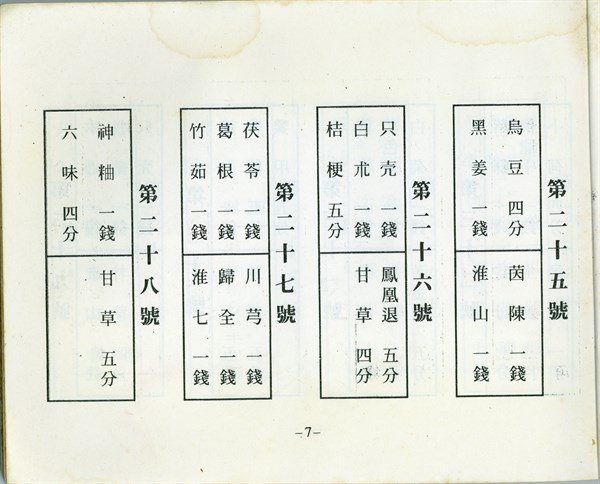 第二十五號
烏豆四分 茵陳一錢
黑姜一錢 淮山一錢
第二十六號
只壳一錢 鳳凰退五分
白朮一錢 甘草四分
桔梗五分
第二十七號
茯苓一錢 川芎一錢
葛根一錢 歸全一錢
竹茹一錢 淮七一錢
第二十八號
神粬一錢 甘草五分
六味四分
-7-